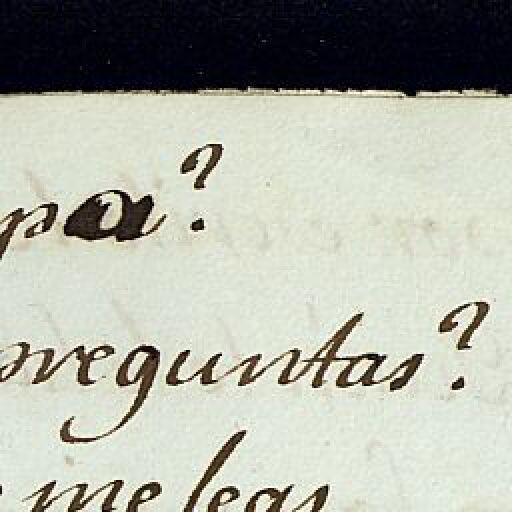 pa?
preguntas?
me leas